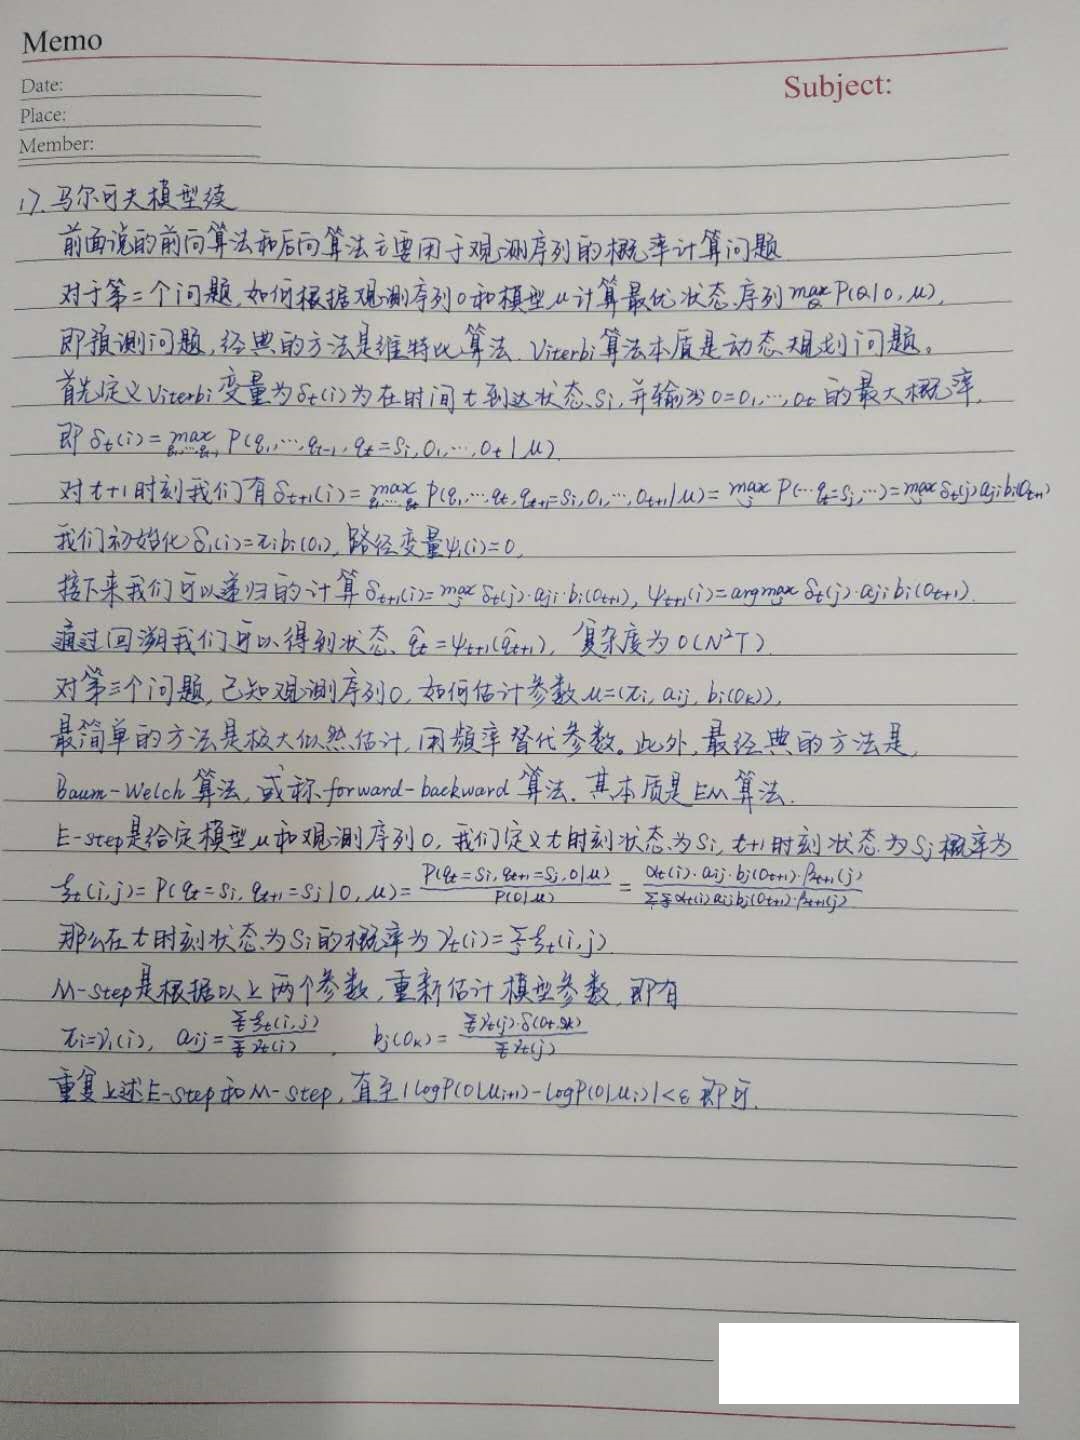 Memo
Subject:
Date:
Place:
Member:
17. 马尔可夫模型续
前面说的前向算法和后向算法主要用于观测序列的概率计算问题
对于第二个问题,如何根据观测序列O和模型μ计算最优状态序列 max_Q P(Q|O, μ),
即预测问题,经典的方法是维特比算法. Viterbi算法本质是动态规划问题。
首先定义Viterbi变量为δt(i)为在时间t到达状态Si,并输出O=O₁,…,Ot的最大概率,
即 δt(i)= max_{q₁…qt-1} P(q₁,…,qt-1, qt=Si, O₁,…,Ot|μ).
对t+1时刻我们有δt+1(i)= max_{q₁…qt} P(q₁,…qt, qt+1=Si, O₁,…,Ot+1|μ)= max_j P(…qt=Sj,…)= max_j δt(j)ajibi(Ot+1)
我们初始化δ₁(i)=πibi(O₁), 路径变量ψ₁(i)=0,
接下来我们可以递归的计算δt+1(i)= max_j δt(j)·aji·bi(Ot+1), ψt+1(i)=argmax_j δt(j)·ajibi(Ot+1).
通过回溯我们可以得到状态 q̂t=ψt+1(q̂t+1), 复杂度为O(N²T).
对第三个问题,已知观测序列O, 如何估计参数 μ=(πi, aij, bi(Ok)),
最简单的方法是极大似然估计,用频率替代参数。此外,最经典的方法是,
Baum-Welch算法,或称forward-backward算法. 其本质是EM算法.
E-step是给定模型μ和观测序列O, 我们定义t时刻状态为Si, t+1时刻状态为Sj概率为
ξt(i,j)= P(qt=Si, qt+1=Sj|O, μ)= P(qt=Si, qt+1=Sj, O|μ)/P(O|μ) = αt(i)·aij·bj(Ot+1)·βt+1(j)/ΣΣαt(i)aijbj(Ot+1)·βt+1(j)
那么在t时刻状态为Si的概率为γt(i)=Σξt(i,j)
M-step是根据以上两个参数,重新估计模型参数,即有
πi=γ₁(i), aij= Σξt(i,j)/Σγt(i), bj(Ok)= Σγt(j)·δ(Ot,Ok)/Σγt(j)
重复上述E-step和M-step, 直至|logP(O|μi+1)-logP(O|μi)|<ε即可.